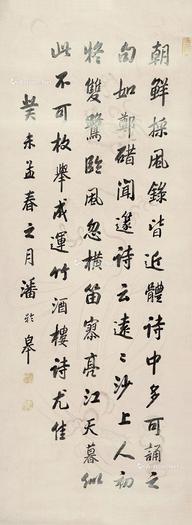 朝鮮採風錄皆近體詩中多可誦之
句如鄭碏聞邃詩云遠〻沙上人初
疑雙鷺臨風忽橫笛寥亮江天暮似
此不可枚舉成運竹酒樓詩尤佳
癸未孟春之月潘於皋